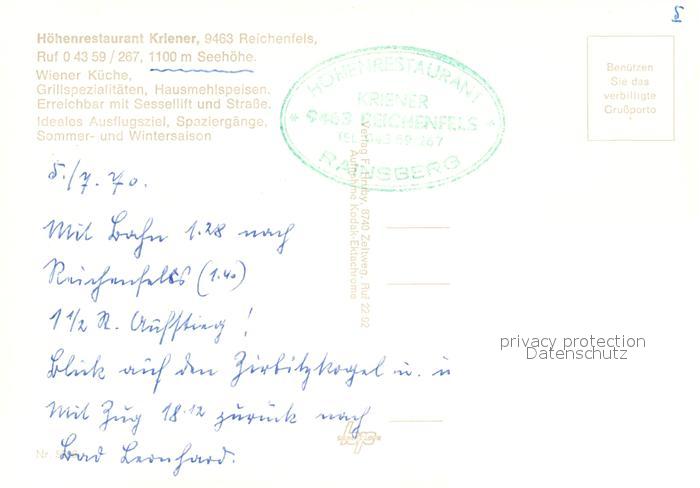 5
Höhenrestaurant Kriener, 9463 Reichenfels,
Ruf 0 43 59 / 267, 1100 m Seehöhe.
Wiener Küche,
Grillspezialitäten, Hausmehlspeisen.
Erreichbar mit Sessellift und Straße.
Ideales Ausflugsziel, Spaziergänge,
Sommer- und Wintersaison
HÖHENRESTAURANT
KRIENER
* 9463 REICHENFELS *
TEL. 043 59-267
RAINSBERG
Benützen
Sie das
verbilligte
Grußporto
Verlag F. Hruby, 8740 Zeltweg, Ruf 22-92
Aufnahme Kodak-Ektachrome
5./7. 70.
Mit Bahn 1.28 nach
Reichenfels (1.40)
1 1/2 St. Aufstieg!
Blick auf den Zirbitzkogel u. u
Mit Zug 18.12 zurück nach
Bad Leonhard.
Nr.
privacy protection
Datenschutz